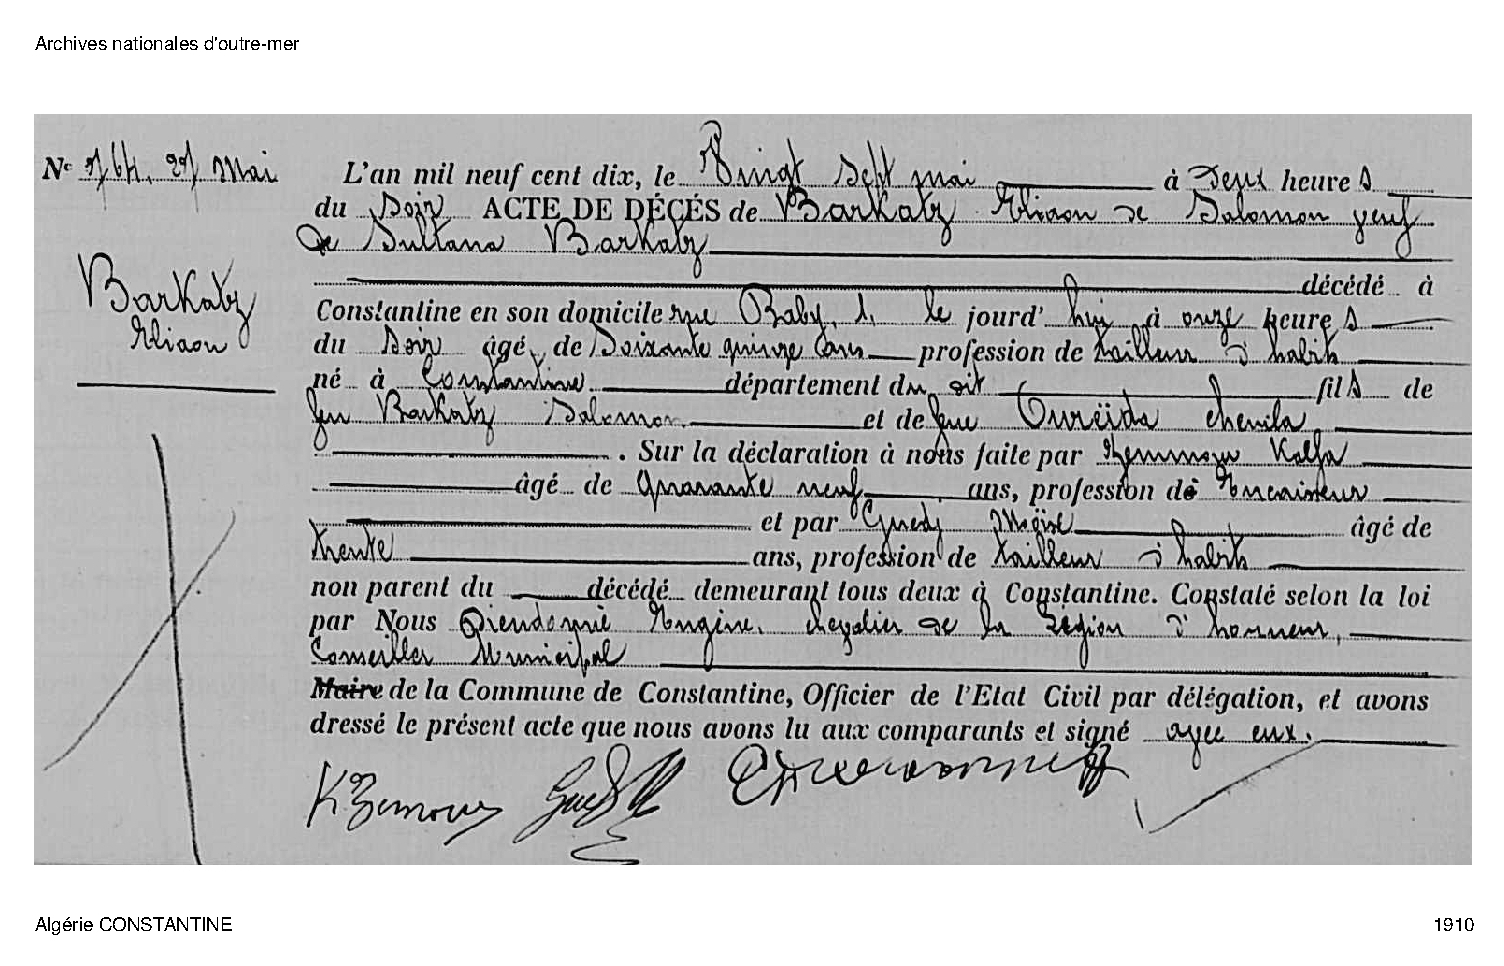 Archives nationales d'outre-mer
N° 764. 27 Mai
Barkatz
Eliaou
L'an mil neuf cent dix, le Vingt Sept mai à Deux heures
du Soir ACTE DE DÉCÈS de Barkatz Eliaou de Salomon veuf
de Sultana Barkatz
décédé à
Constantine en son domicile rue Baby, 1, le jourd'hui à onze heures
du Soir âgé de Soixante quinze ans profession de tailleur d'habits
né à Constantine département du dit fils de
feu Barkatz Salomon et de feue Ouréïda Chemila
. Sur la déclaration à nous faite par Zemmour Kalfa
âgé de Quarante neuf ans, profession de Encaisseur
et par Guedj Moïse âgé de
trente ans, profession de tailleur d'habits
non parent du décédé demeurant tous deux à Constantine. Constaté selon la loi
par Nous Eugène, chevalier de la Légion d'honneur,
Conseiller Municipal
Maire de la Commune de Constantine, Officier de l'Etat Civil par délégation, et avons
dressé le présent acte que nous avons lu aux comparants et signé avec eux.
K Zemour
Algérie CONSTANTINE
1910